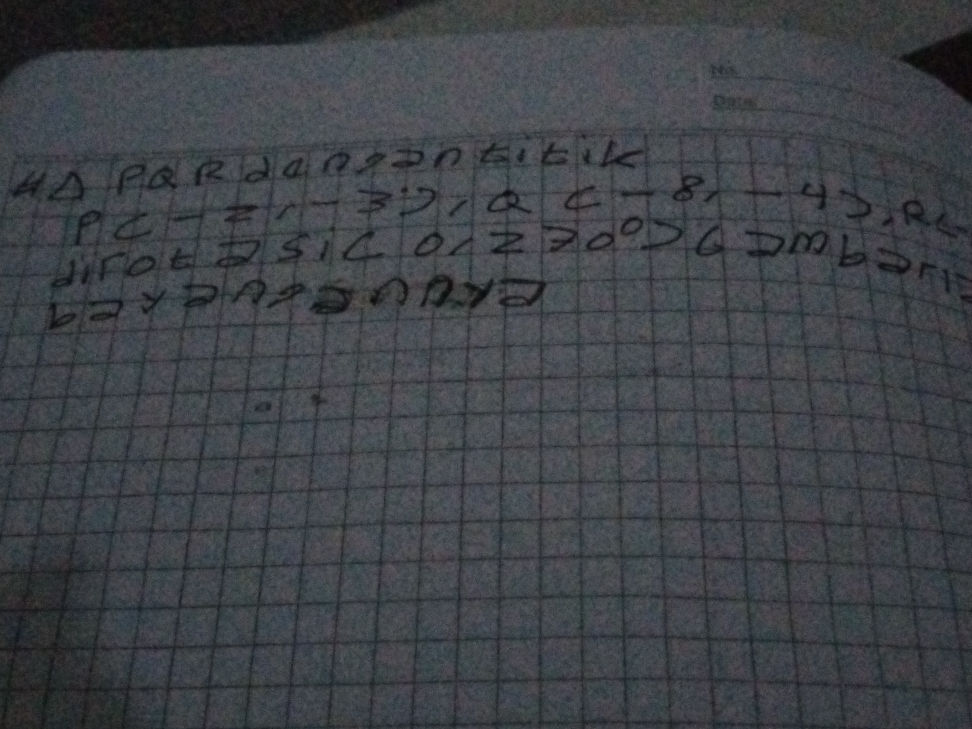 No.
Date
4 Δ PQR dengan titik
P(-2, -3), Q(-8, -4), R(-
dirotasi(0, 270°) Gambarla
bayangannya